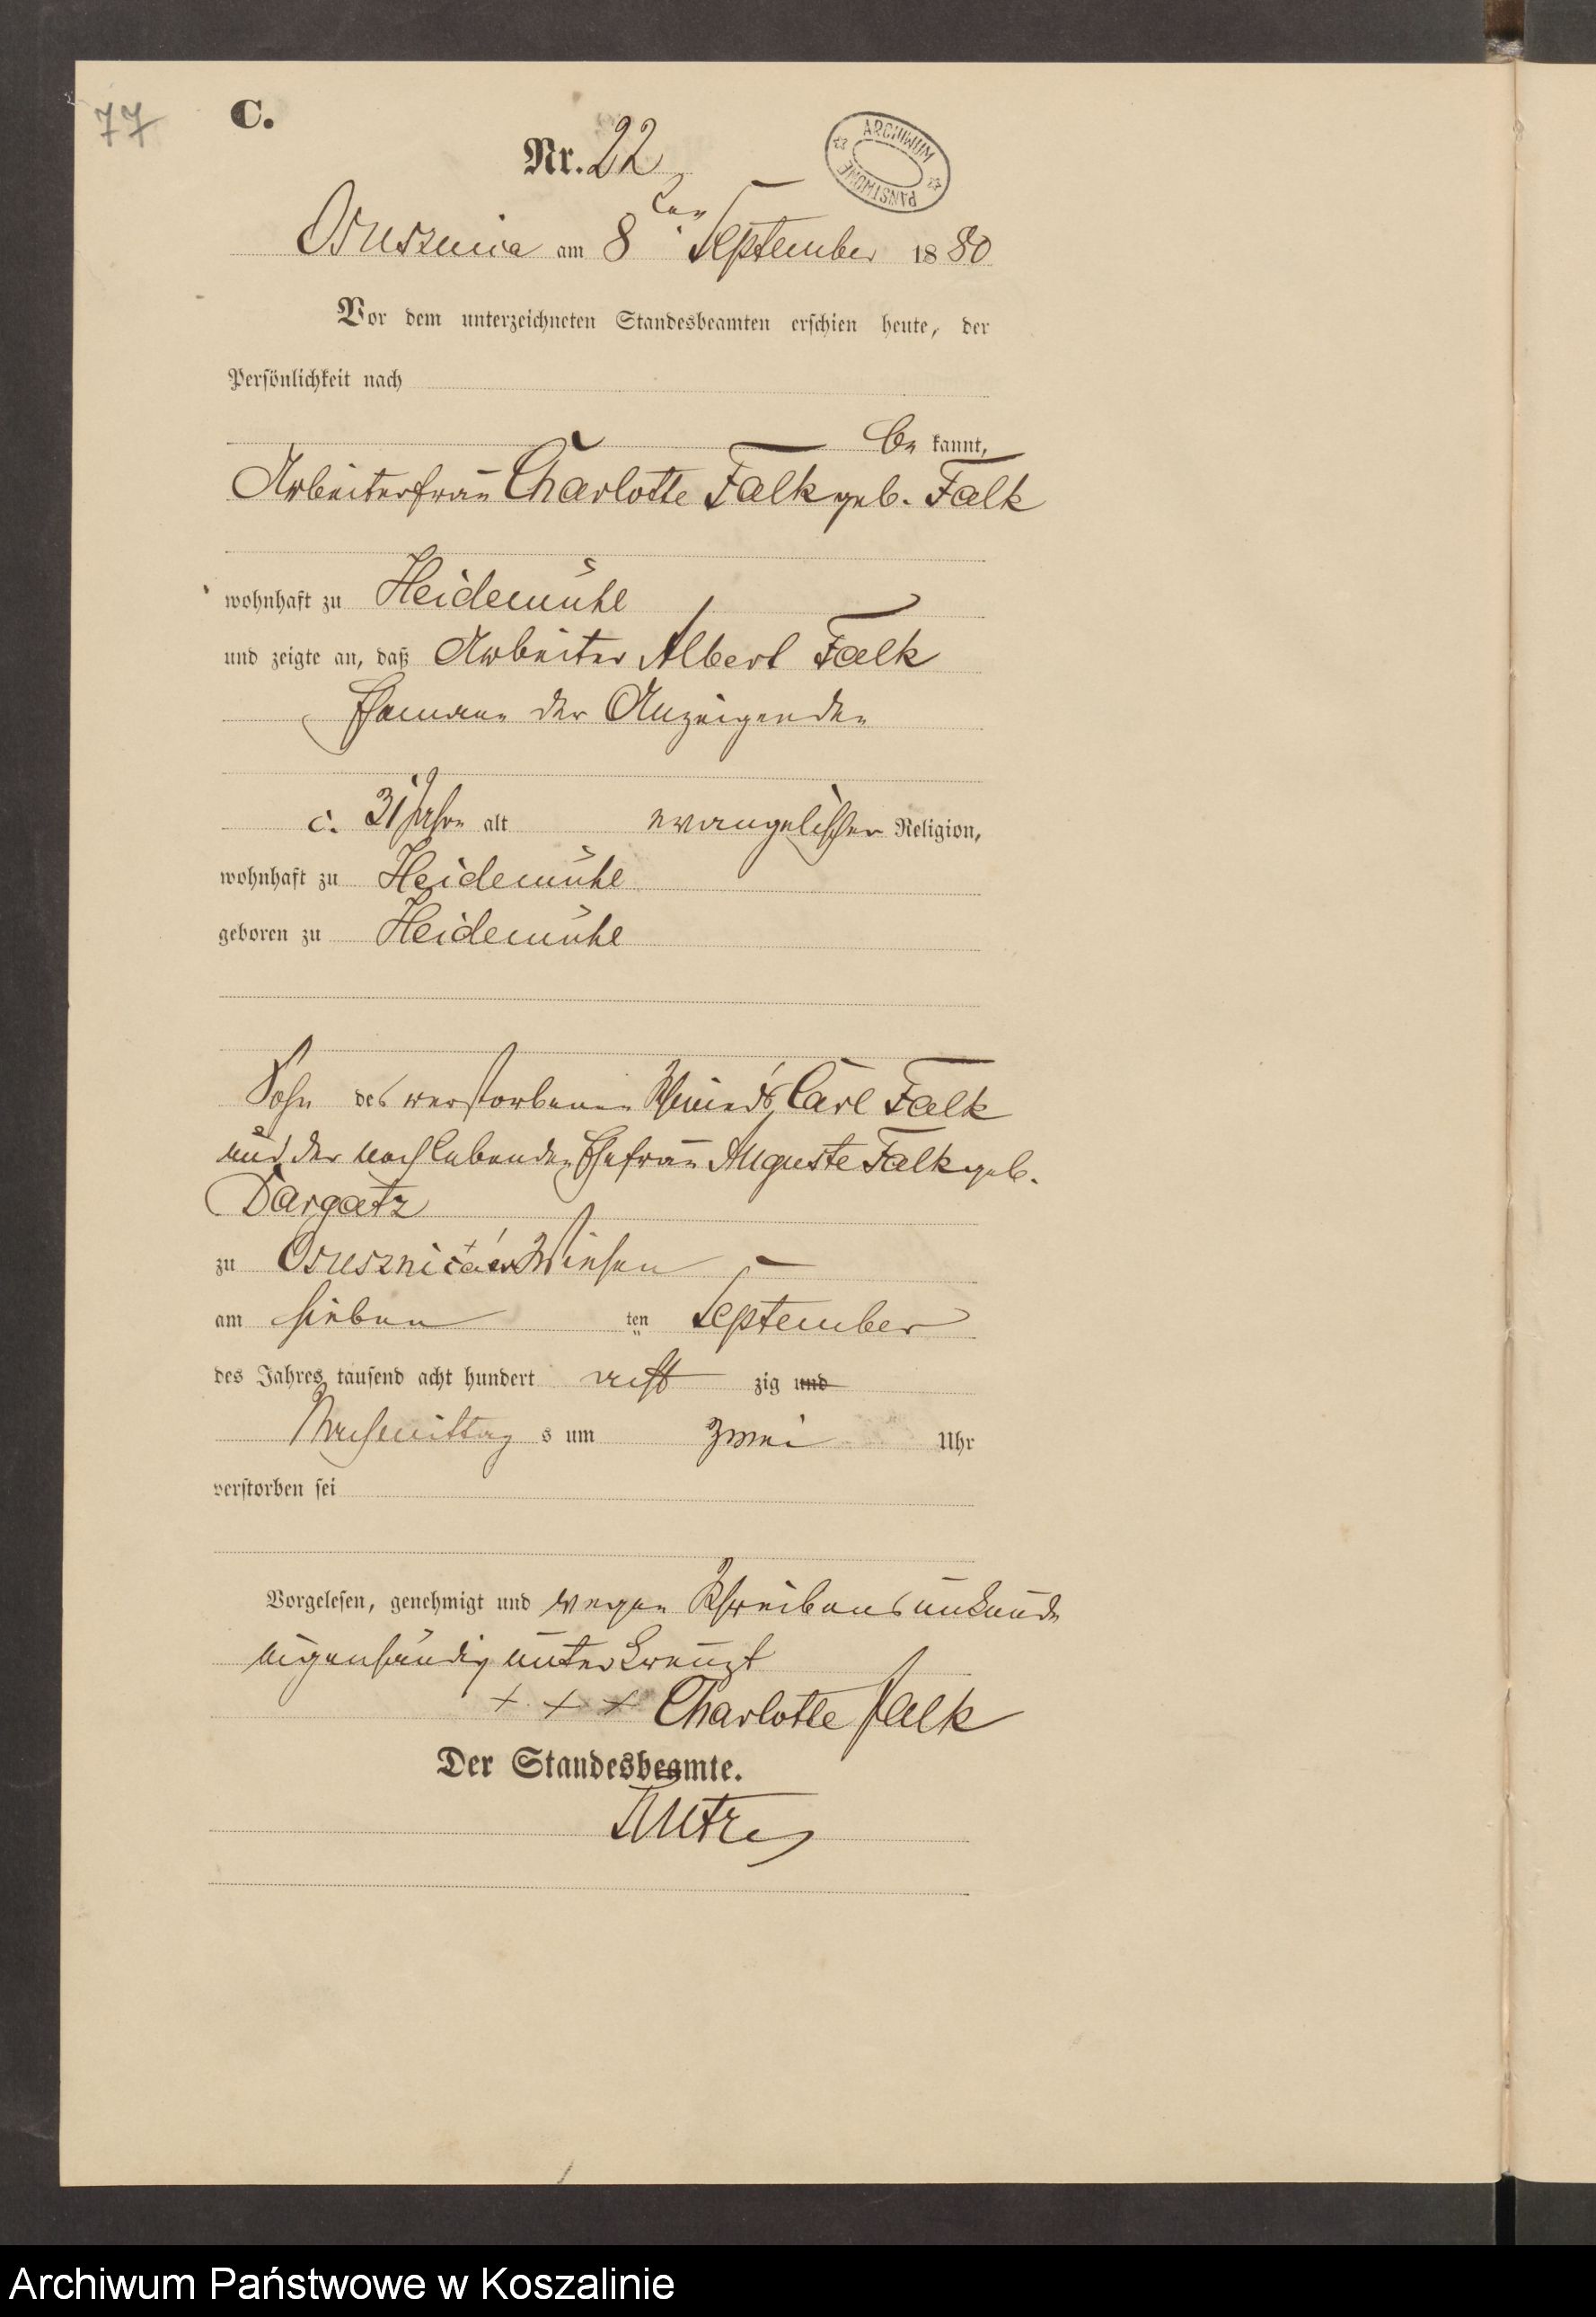 77
C.
Nr. 22
ARCHIWUM PAŃSTWOWE
Osusznica am 8ten September 1880
Vor dem unterzeichneten Standesbeamten erschien heute, der
Persönlichkeit nach
be kannt,
Arbeiterfrau Charlotte Falk geb. Falk
wohnhaft zu Heidemühl
und zeigte an, daß Arbeiter Albert Falk
Ehemann der Anzeigenden
c. 31 Jahre alt evangelischer Religion,
wohnhaft zu Heidemühl
geboren zu Heidemühl
Sohn des verstorbenen Schmieds Carl Falk
und der noch lebenden Ehefrau Auguste Falk geb.
Dargatz
zu Osusznica'er Wiesen
am sieben ten September
des Jahres tausend acht hundert acht zig und
Nachmittag s um zwei Uhr
verstorben sei
Vorgelesen, genehmigt und wegen Schreibensunkunde
eigenhändig unterkreuzt
+ + + Charlotte Falk
Der Standesbeamte.
Archiwum Państwowe w Koszalinie